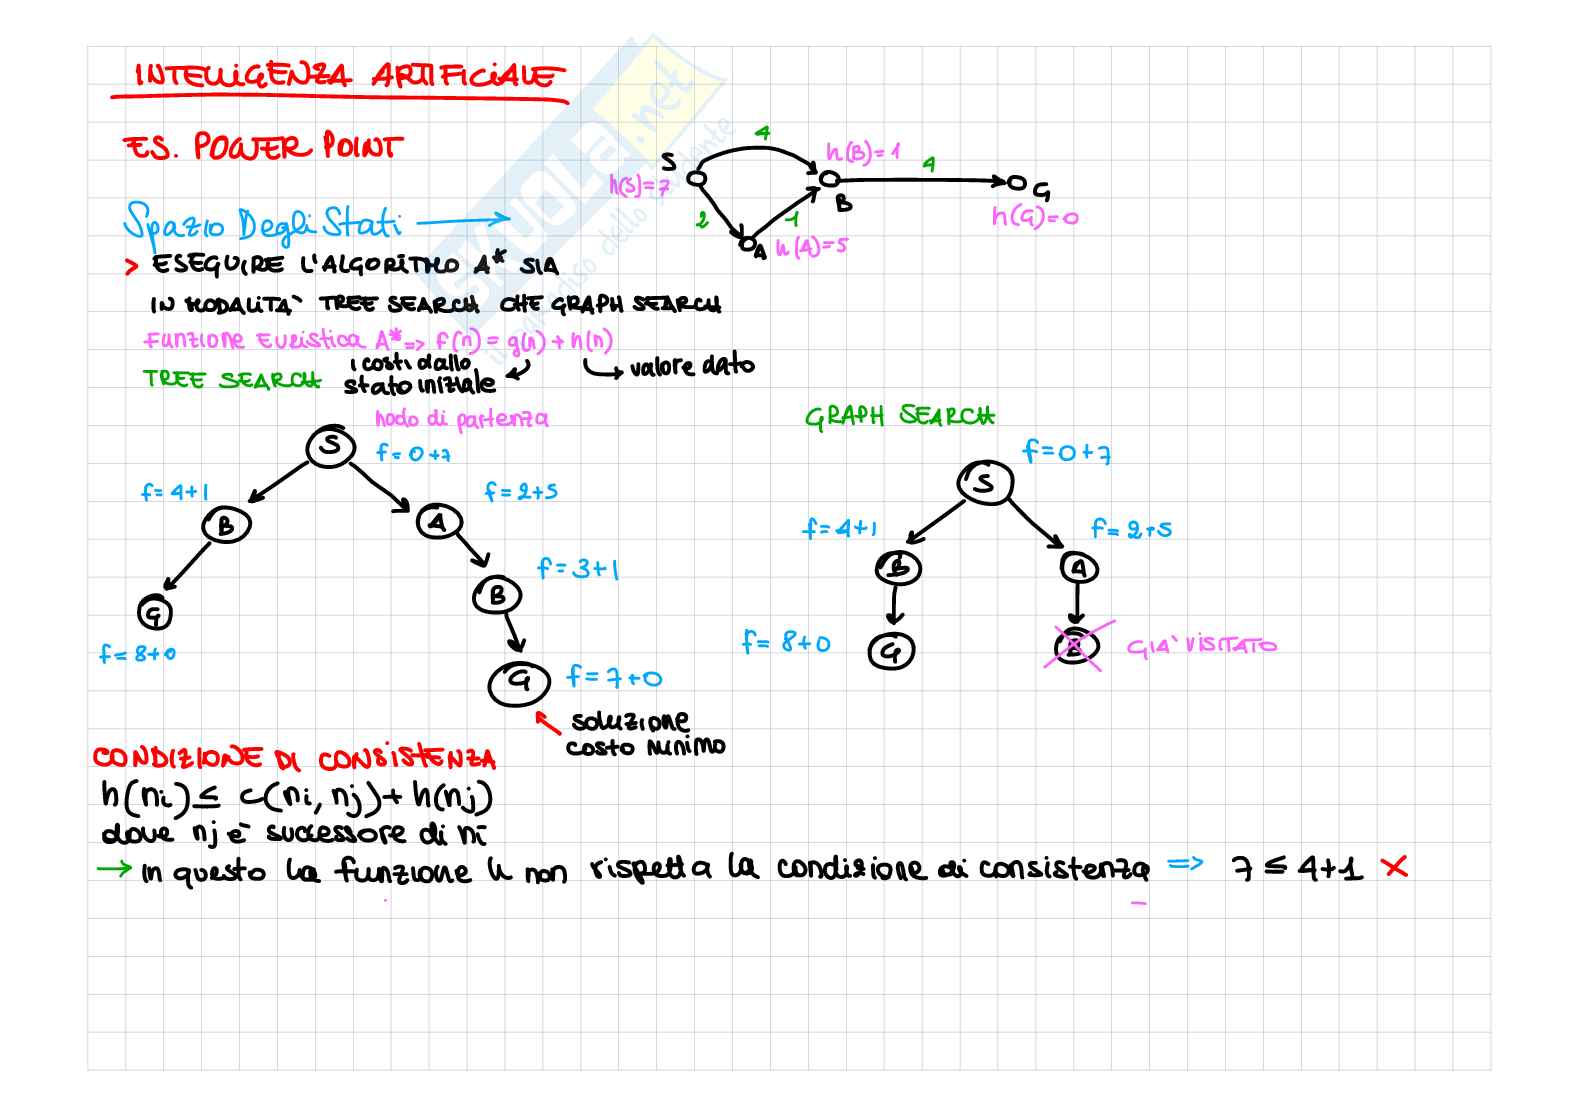 INTELLIGENZA ARTIFICIALE
ES. POWER POINT
Spazio Degli Stati
> ESEGUIRE L'ALGORITMO A* SIA
IN MODALITA' TREE SEARCH CHE GRAPH SEARCH
Funzione Euristica A* => f(n) = g(n) + h(n)
i costi dallo
stato iniziale
valore dato
S
h(S)=7
4
h(B)=1
B
4
G
h(G)=0
2
1
A
h(A)=5
TREE SEARCH
nodo di partenza
S
f=0+7
f=4+1
B
f=2+5
A
f=3+1
B
G
f=8+0
G
f=7+0
soluzione
costo minimo
GRAPH SEARCH
S
f=0+7
f=4+1
B
f=2+5
A
f=8+0
G
B
GIA' VISITATO
CONDIZIONE DI CONSISTENZA
h(ni) ≤ c(ni, nj) + h(nj)
dove nj è successore di ni
→ in questo la funzione h non rispetta la condizione di consistenza => 7 ≤ 4+1 ×
SKUOLA.net
il paradiso dello studente